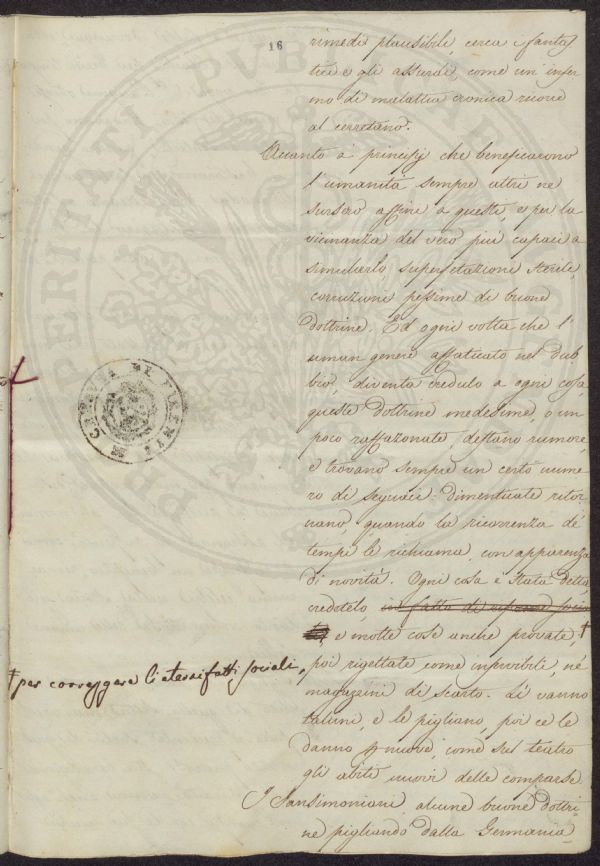 16
rimedi plausibili, cerca i fanta
stici e gli assurdi, come un' infer
mo di malattia cronica ricorre
al cerretano.
Quanto a' principj che beneficarono
l' umanità sempre altri ne
sursero affini a questi, e per la
vicinanza del vero più capaci a
simularlo superfetazioni sterili,
corruzioni pessime di buone
dottrine. Ed ogni volta che l'
uman genere affaticato nel dub
bio, diventa credulo a ogni cosa,
queste dottrine medesime, o un
poco raffazonate, destano rumore,
e trovano sempre un certo nume
ro di seguaci. Dimenticate ritor
nano, quando la ricorrenza de'
tempi le richiama, con apparenza
di novità. Ogni cosa è stata detta,
credetelo, in fatto di riforme socia
li, e molte cose anche provate, †
poi rigettate come inservibili, ne'
magazzini di scarto. Lì vanno
taluni, e le pigliano, poi ce le
danno p nuove, come sul teatro
gli abiti nuovi delle comparse.
I Sansimoniani, alcune buone dottri
ne pigliando dalla Germania
† per correggere li stessi fatti sociali,